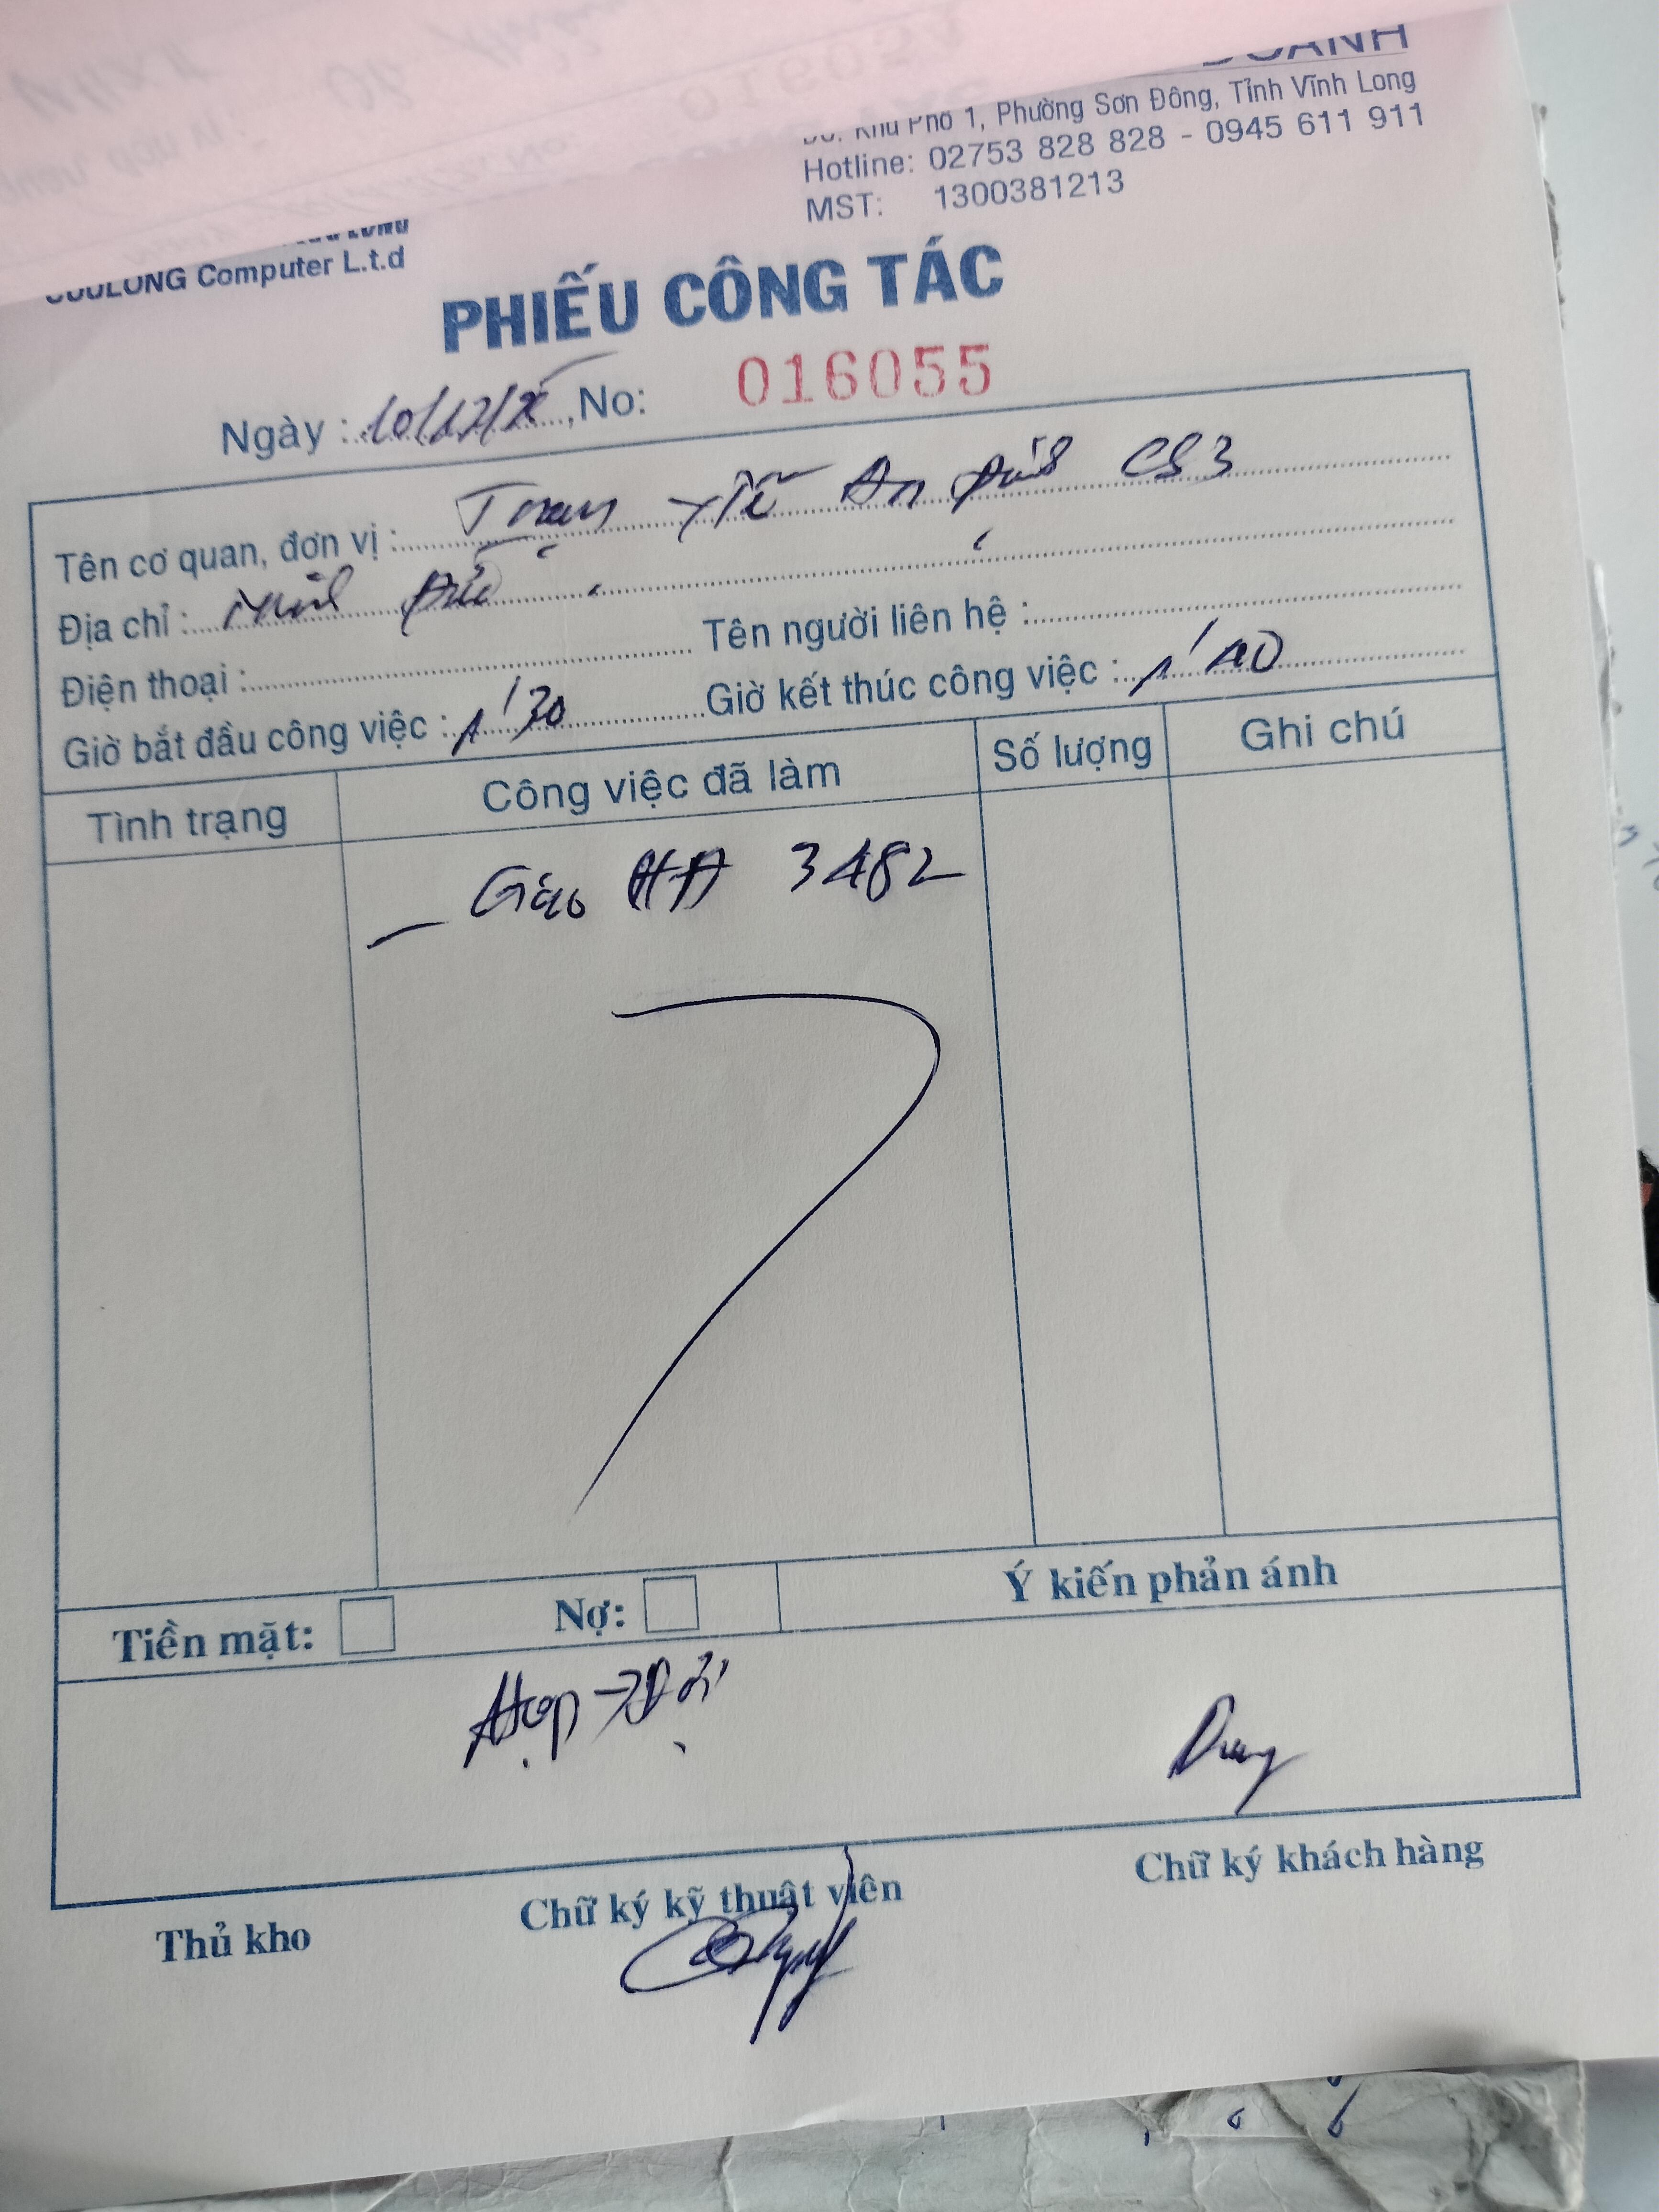 DOANH
Khu Phố 1, Phường Sơn Đông, Tỉnh Vĩnh Long
Hotline: 02753 828 828 - 0945 611 911
MST: 1300381213
CUULONG Computer L.t.d
PHIẾU CÔNG TÁC
Ngày : 10/12/25, No: 016055
Tên cơ quan, đơn vị : Trạm Y Tế An Đức CS3
Địa chỉ : Đức
Điện thoại : Tên người liên hệ :
Giờ bắt đầu công việc : 1'30 Giờ kết thúc công việc : 1'40
Tình trạng Công việc đã làm Số lượng Ghi chú
- Giao HĐ 3482
Tiền mặt: Nợ: Ý kiến phản ánh
Dung
Thủ kho Chữ ký kỹ thuật viên Chữ ký khách hàng